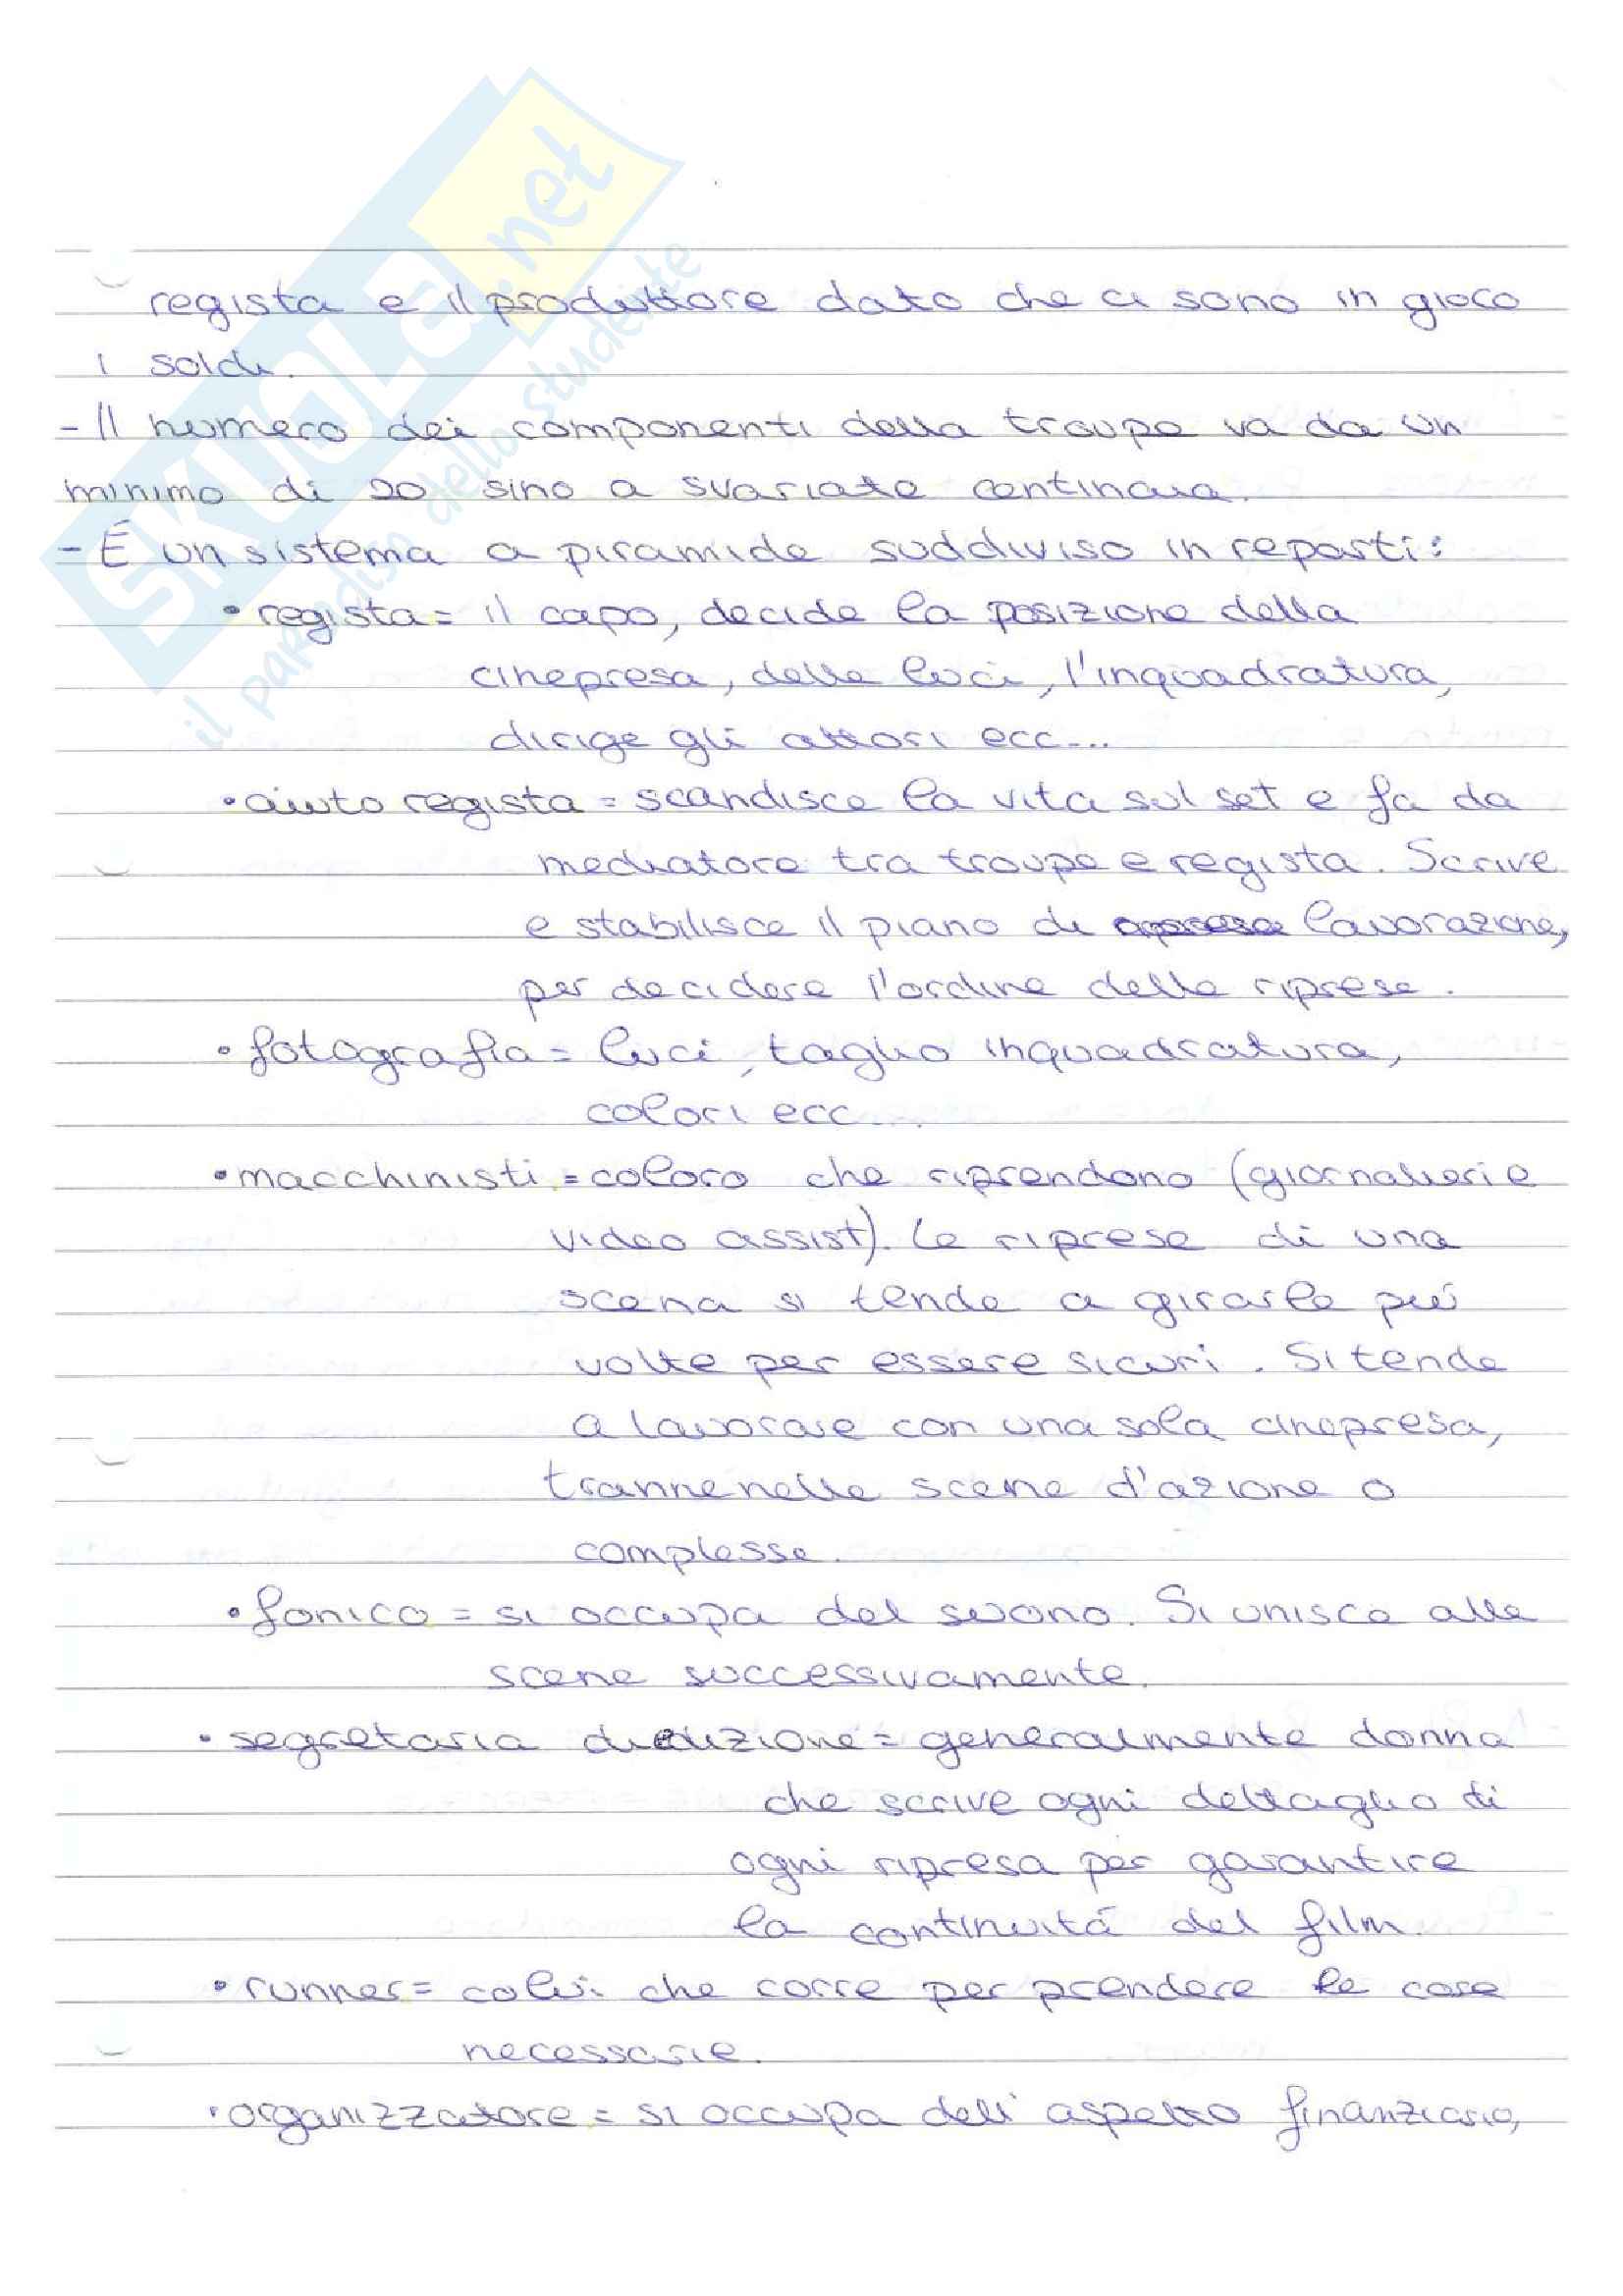 SKUOLA.net
il paradiso dello studente
regista e il produttore dato che ci sono in gioco
i soldi.
- Il numero dei componenti della troupe va da un
minimo di 20 sino a svariate centinaia.
- É un sistema a piramide suddiviso in reparti:
• regista = il capo, decide la posizione della
cinepresa, delle luci, l'inquadratura,
dirige gli attori ecc...
• aiuto regista = scandisce la vita sul set e fa da
mediatore tra troupe e regista. Scrive
e stabilisce il piano di lavorazione,
per decidere l'ordine delle riprese.
• fotografia = luci, taglio inquadratura,
colori ecc...
• macchinisti = coloro che riprendono (giornalieri e
video assist). Le riprese di una
scena si tende a girarle piú
volte per essere sicuri. Si tende
a lavorare con una sola cinepresa,
tranne nelle scene d'azione o
complesse.
• fonico = si occupa del suono. Si unisce alle
scene successivamente.
• segretaria di edizione = generalmente donna
che scrive ogni dettaglio di
ogni ripresa per garantire
la continuitá del film.
• runner = colui che corre per prendere le cose
necessarie.
• organizzatore = si occupa dell'aspetto finanziario,